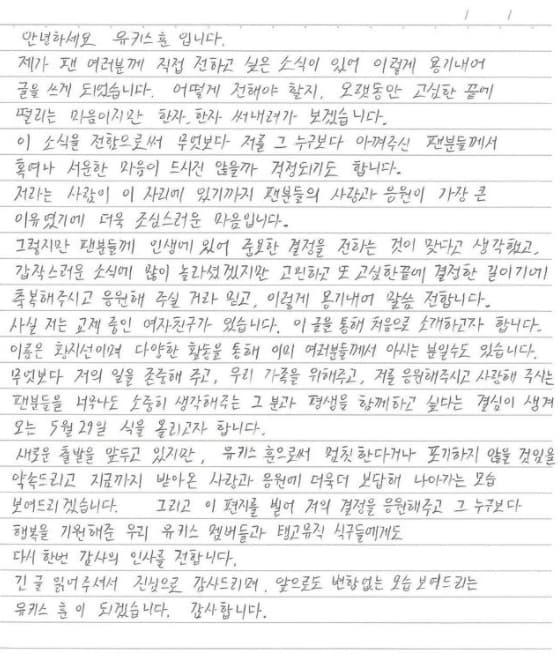 안녕하세요 유키스 훈 입니다.
제가 팬 여러분께 직접 전하고 싶은 소식이 있어 이렇게 용기내어
글을 쓰게 되었습니다. 어떻게 전해야 할지, 오랫동안 고심한 끝에
떨리는 마음이지만 한자,한자 써내려가 보겠습니다.
이 소식을 전함으로써 무엇보다 저를 그 누구보다 아껴주신 팬분들께서
혹여나 서운한 마음이 드시진 않을까 걱정되기도 합니다.
저라는 사람이 이 자리에 있기까지 팬분들의 사랑과 응원이 가장 큰
이유였기에 더욱 조심스러운 마음입니다.
그렇지만 팬분들께 인생에 있어 중요한 결정을 전하는 것이 맞다고 생각했고,
갑작스러운 소식에 많이 놀라셨겠지만 고민하고 또 고심한끝에 결정한 길이기에
축복해주시고 응원해 주실 거라 믿고, 이렇게 용기내어 말씀 전합니다.
사실 저는 교제 중인 여자친구가 있습니다. 이 글을 통해 처음으로 소개하고자 합니다.
이름은 황지선이며 다양한 활동을 통해 이미 여러분들께서 아시는 분일수도 있습니다.
무엇보다 저의 일을 존중해 주고, 우리 가족을 위해주고, 저를 응원해주시고 사랑해 주시는
팬분들을 너무나도 소중히 생각해주는 그 분과 평생을 함께하고 싶다는 결심이 생겨
오는 5월 29일 식을 올리고자 합니다.
새로운 출발을 앞두고 있지만, 유키스 훈으로써 멈칫한다거나 포기하지 않을 것임을
약속드리고 지금까지 받아온 사랑과 응원에 더욱더 보답해 나아가는 모습
보여드리겠습니다. 그리고 이 편지를 빌어 저의 결정을 응원해주고 그 누구보다
행복을 기원해준 우리 유키스 멤버들과 탱고뮤직 식구들에게도
다시 한번 감사의 인사를 전합니다.
긴 글 읽어주셔서 진심으로 감사드리며, 앞으로도 변함없는 모습 보여드리는
유키스 훈 이 되겠습니다. 감사합니다.